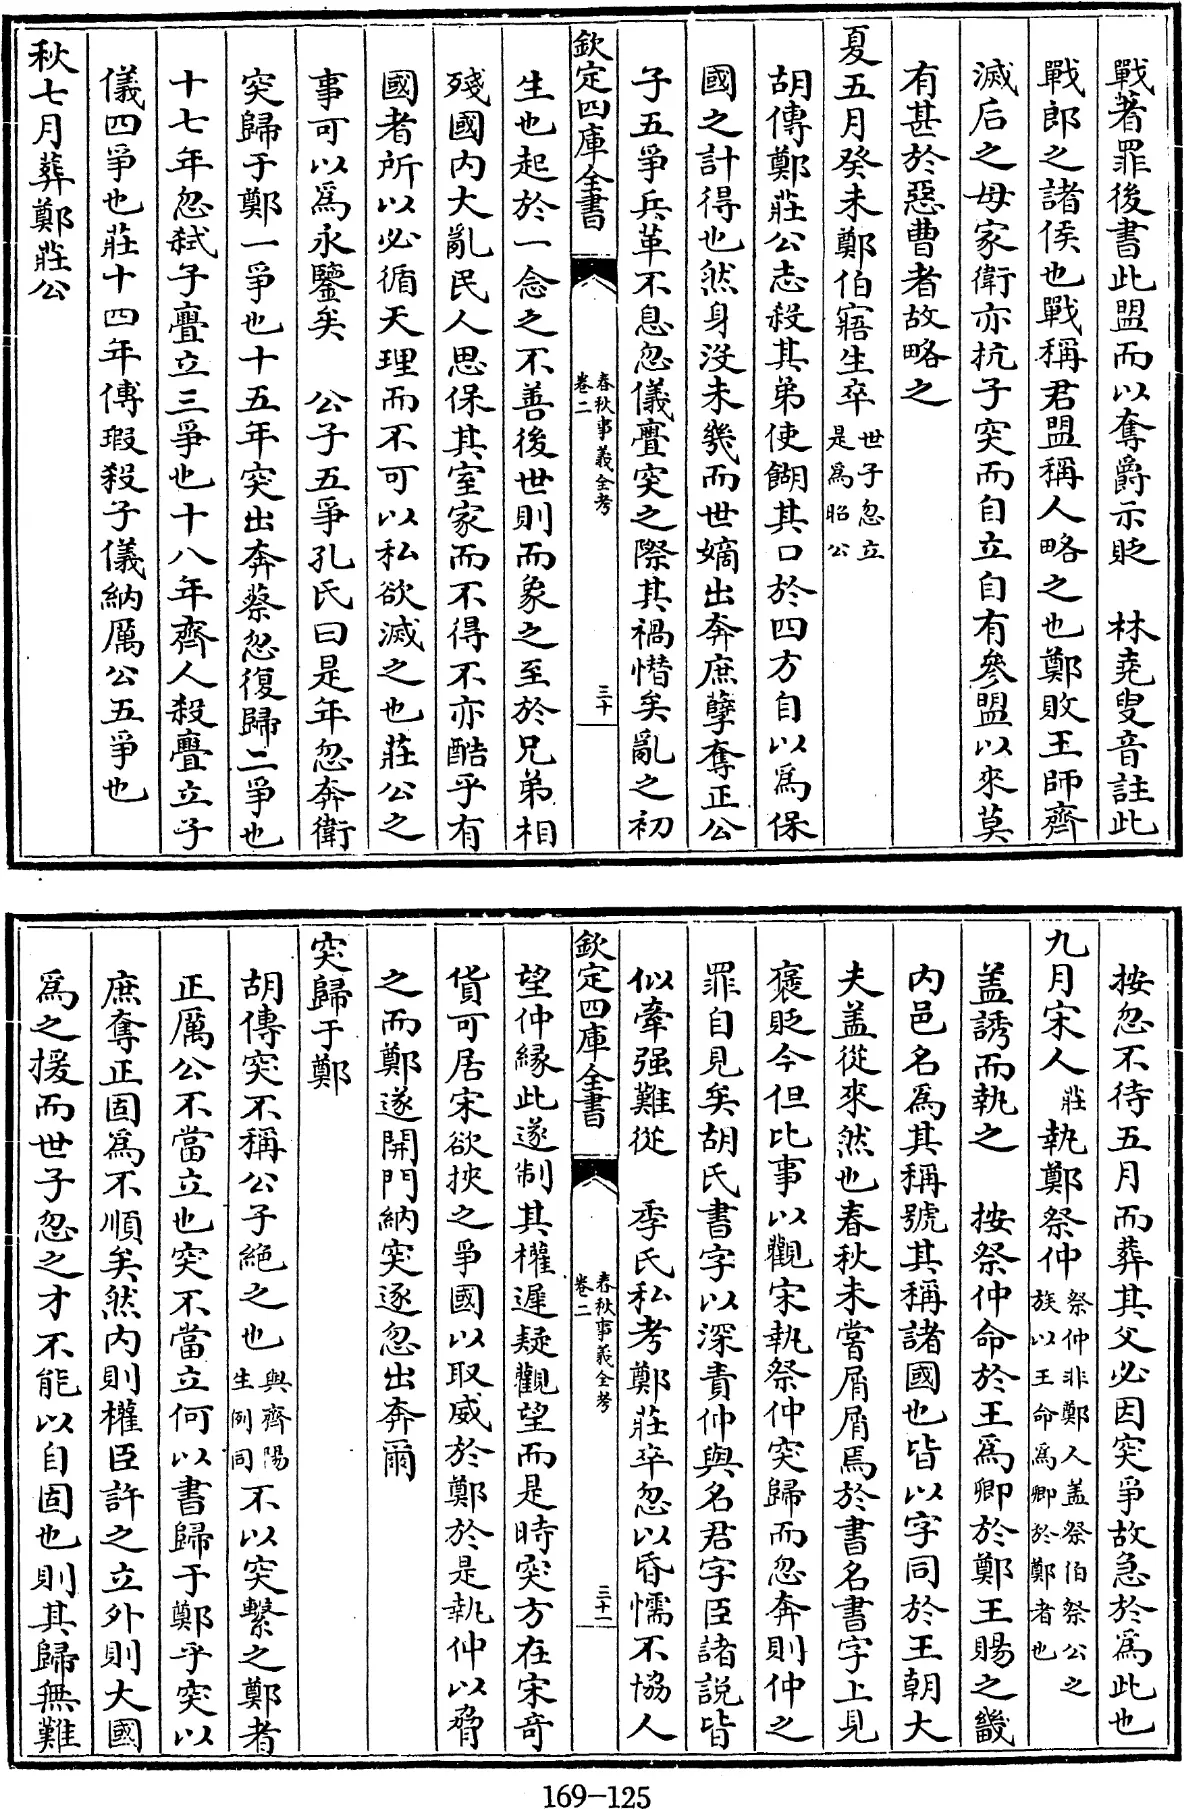 戰者罪後書此盟而以奪爵示貶　林堯叟音註此
戰郎之諸侯也戰稱君盟稱人略之也鄭敗王師齊
滅后之母家衛亦抗子突而自立自有參盟以來莫
有甚於惡曹者故略之
夏五月癸未鄭伯寤生卒世子忽立是為昭公
胡傳鄭莊公志殺其弟使餬其口於四方自以為保
國之計得也然身沒未幾而世嫡出奔庶孽奪正公
子五爭兵革不息忽儀亹突之際其禍憯矣亂之初
欽定四庫全書
春秋事義全考
卷二
三十
生也起於一念之不善後世則而象之至於兄弟相
殘國內大亂民人思保其室家而不得不亦酷乎有
國者所以必循天理而不可以私欲滅之也莊公之
事可以為永鑒矣　公子五爭孔氏曰是年忽奔衛
突歸于鄭一爭也十五年突出奔蔡忽復歸二爭也
十七年忽弒子亹立三爭也十八年齊人殺亹立子
儀四爭也莊十四年傅瑕殺子儀納厲公五爭也
秋七月葬鄭莊公
按忽不待五月而葬其父必因突爭故急於為此也
九月宋人莊執鄭祭仲祭仲非鄭人盖祭伯祭公之族以王命為卿於鄭者也
盖誘而執之　按祭仲命於王為卿於鄭王賜之畿
內邑名為其稱號其稱諸國也皆以字同於王朝大
夫盖從來然也春秋未嘗屑屑焉於書名書字上見
褒貶今但比事以觀宋執祭仲突歸而忽奔則仲之
罪自見矣胡氏書字以深責仲與名君字臣諸說皆
似牽强難從　季氏私考鄭莊卒忽以昏懦不協人
欽定四庫全書
春秋事義全考
卷二
三十一
望仲緣此遂制其權遲疑觀望而是時突方在宋奇
貨可居宋欲挾之爭國以取威於鄭於是執仲以脅
之而鄭遂開門納突逐忽出奔爾
突歸于鄭
胡傳突不稱公子絕之也與齊陽生例同不以突繫之鄭者
正厲公不當立也突不當立何以書歸于鄭乎突以
庶奪正固為不順矣然內則權臣許之立外則大國
為之援而世子忽之才不能以自固也則其歸無難
169-125